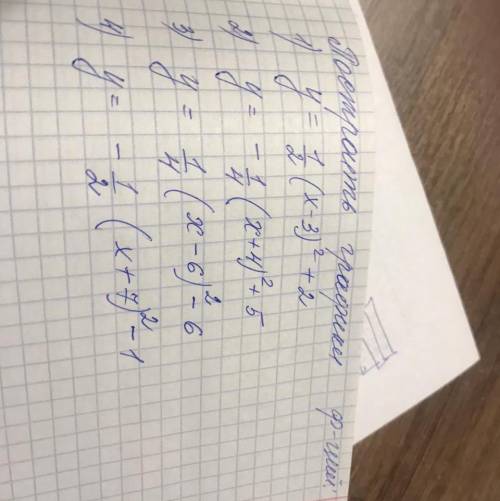 Построить графики ф-ций:
1) y = 1/2 (x-3)² + 2
2) y = - 1/4 (x+4)² + 5
3) y = 1/4 (x-6)² - 6
4) y = - 1/2 (x+7)² - 1